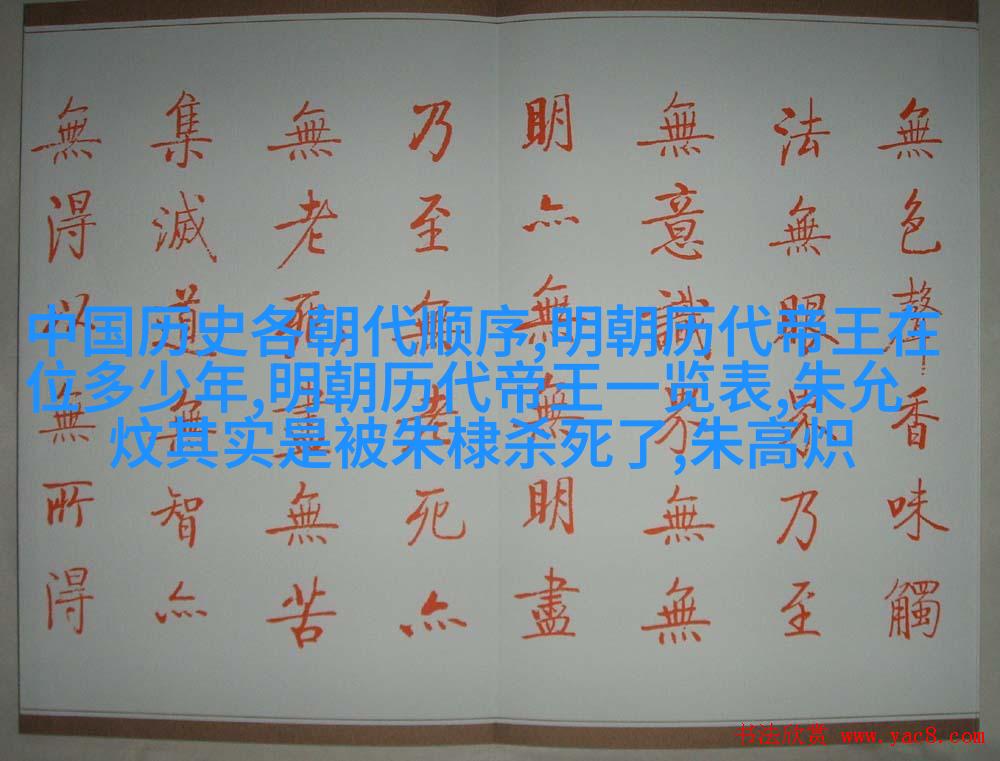 中国历史各朝代顺序,明朝历代帝王在
位多少年,明朝历代帝王一览表,朱允
炆其实是被朱棣杀死了,朱高炽
無色聲香味觸
法無眼界乃至
無意識界無無
明亦無無明盡
乃至無老死亦
無老死盡無苦
集滅道無智亦
無得以無所得
书法欣赏 www.yac8.com